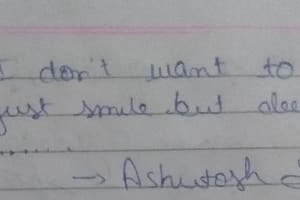 I don't want to
just smile but
.......
→ Ashutosh